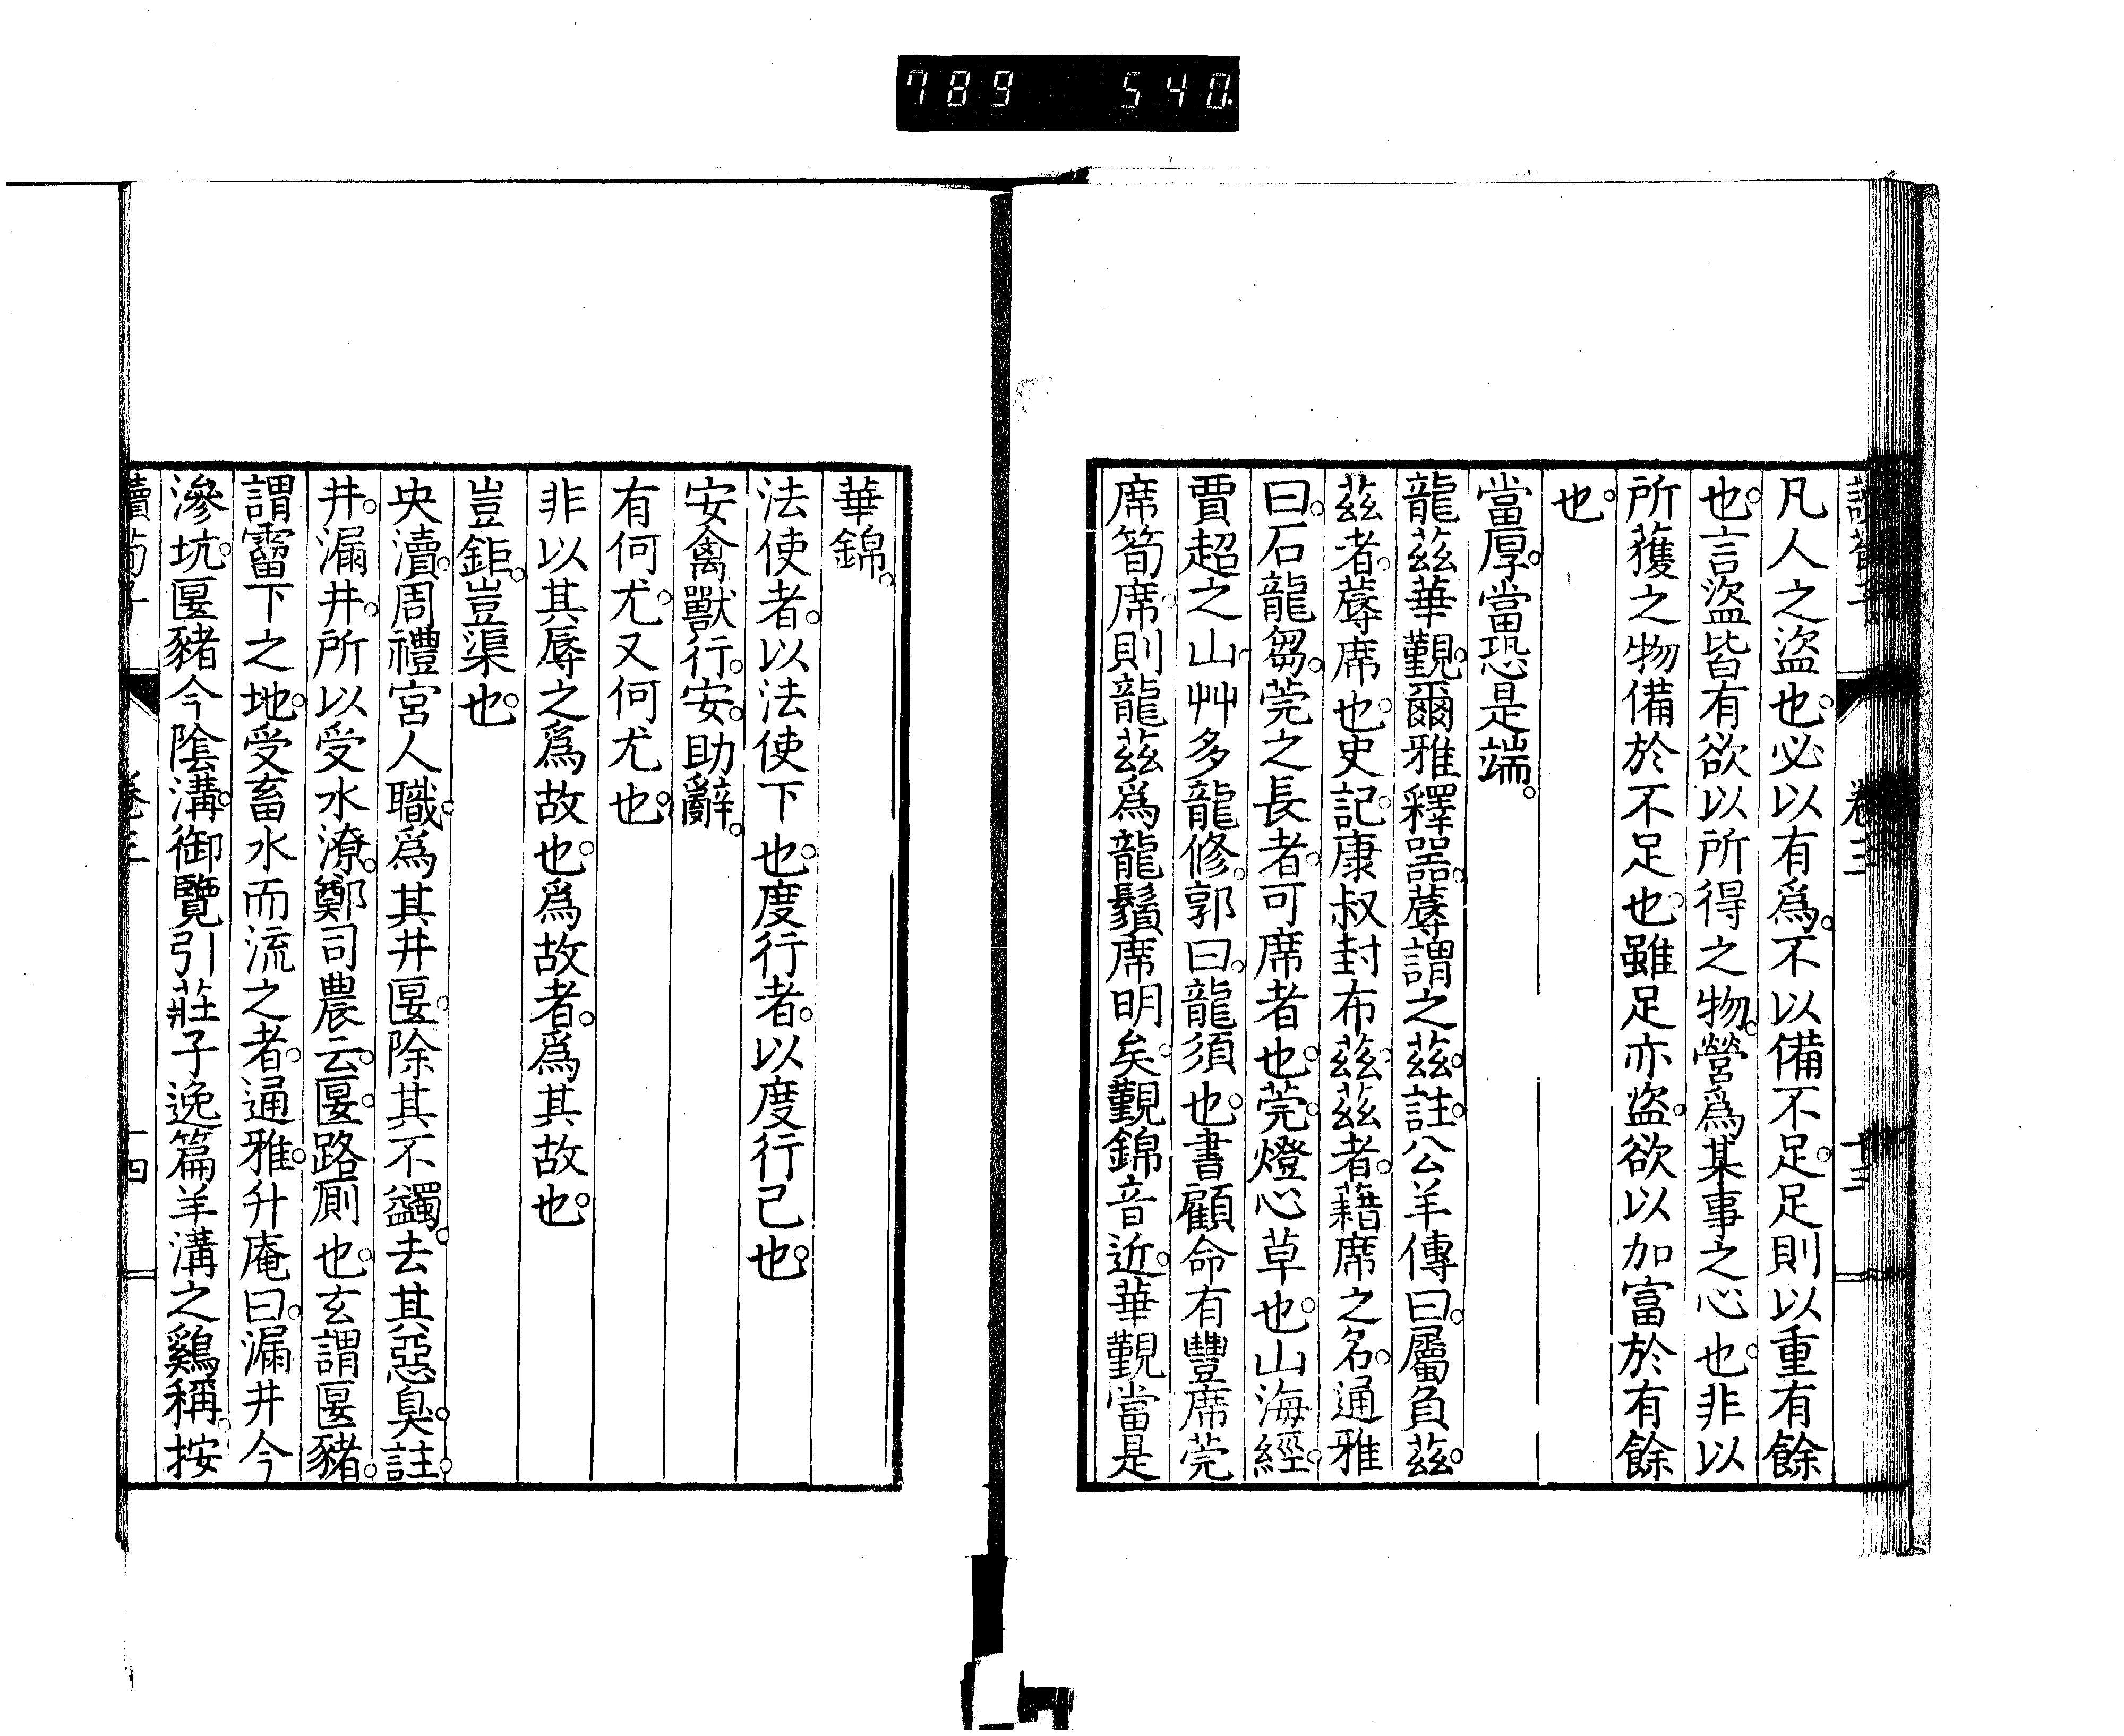 789 540
卷三 十三
凡人之盜也。必以有爲。不以備不足。足則以重有餘
也。言盜皆有欲以所得之物。營爲某事之心也。非以
所獲之物備於不足也。雖足亦盜。欲以加富於有餘
也。
當厚。當恐是端。
龍茲華覲。爾雅釋器。蓐謂之茲。註。公羊傳曰。屬負茲。
茲者。蓐席也。史記。康叔封布茲。茲者。藉席之名。通雅
曰。石龍芻。莞之長者。可席者也。莞。燈心草也。山海經。
賈超之山。艸多龍修。郭曰。龍須也。書顧命有豐席莞
席筍席。則龍茲爲龍鬚席明矣。覲錦音近。華覲當是
華錦。
法使者。以法使下也。度行者。以度行己也。
安禽獸行。安。助辭。
有何尤。又何尤也。
非以其辱之爲故也。爲故者。爲其故也。
豈鉅。豈渠也。
央瀆。周禮宮人職。爲其井匽。除其不蠲。去其惡臭。註。
井。漏井。所以受水潦。鄭司農云。匽。路厠也。玄謂匽豬。
謂霤下之地。受畜水而流之者。通雅。升庵曰。漏井今
滲坑。匽豬今陰溝。御覽引莊子逸篇羊溝之鷄稱。按
讀荀子 卷三 十四